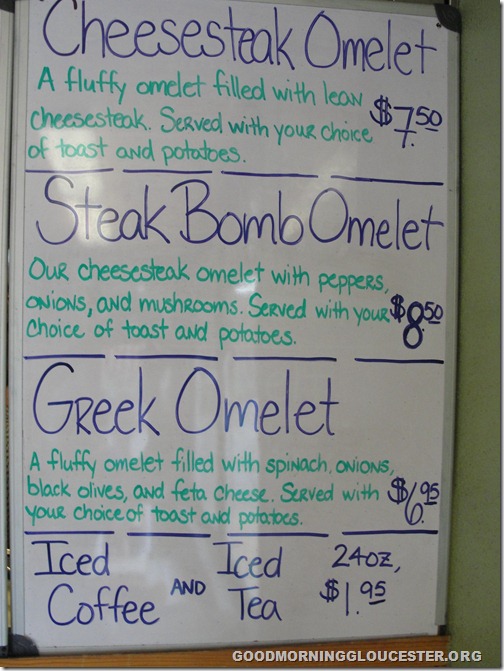 Cheesesteak Omelet
A fluffy omelet filled with lean
cheesesteak. Served with your choice
of toast and potatoes.
$7.50
Steak Bomb Omelet
Our cheesesteak omelet with peppers,
onions, and mushrooms. Served with your
choice of toast and potatoes.
$8.50
Greek Omelet
A fluffy omelet filled with spinach, onions,
black olives, and feta cheese. Served with
your choice of toast and potatoes.
$6.95
Iced Coffee AND Iced Tea
24oz, $1.95
GOODMORNINGGLOUCESTER.ORG